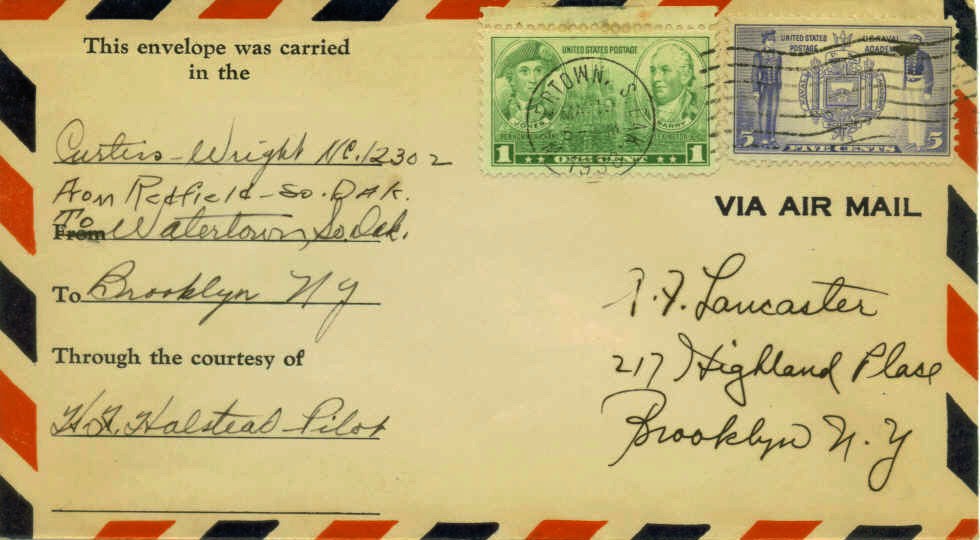 This envelope was carried
in the
Curtiss-Wright NC.12302
From Redfield - So. DAK.
To
From Watertown, So. Dak.
To Brooklyn N Y
Through the courtesy of
H.F. Halstead - Pilot
UNITED STATES POSTAGE
JONES
BARRY
1 ONE CENT 1
UNITED STATES
POSTAGE
U.S. NAVAL
ACADEMY
5 FIVE CENTS 5
VIA AIR MAIL
T.F. Lancaster
217 Highland Place
Brooklyn N.Y